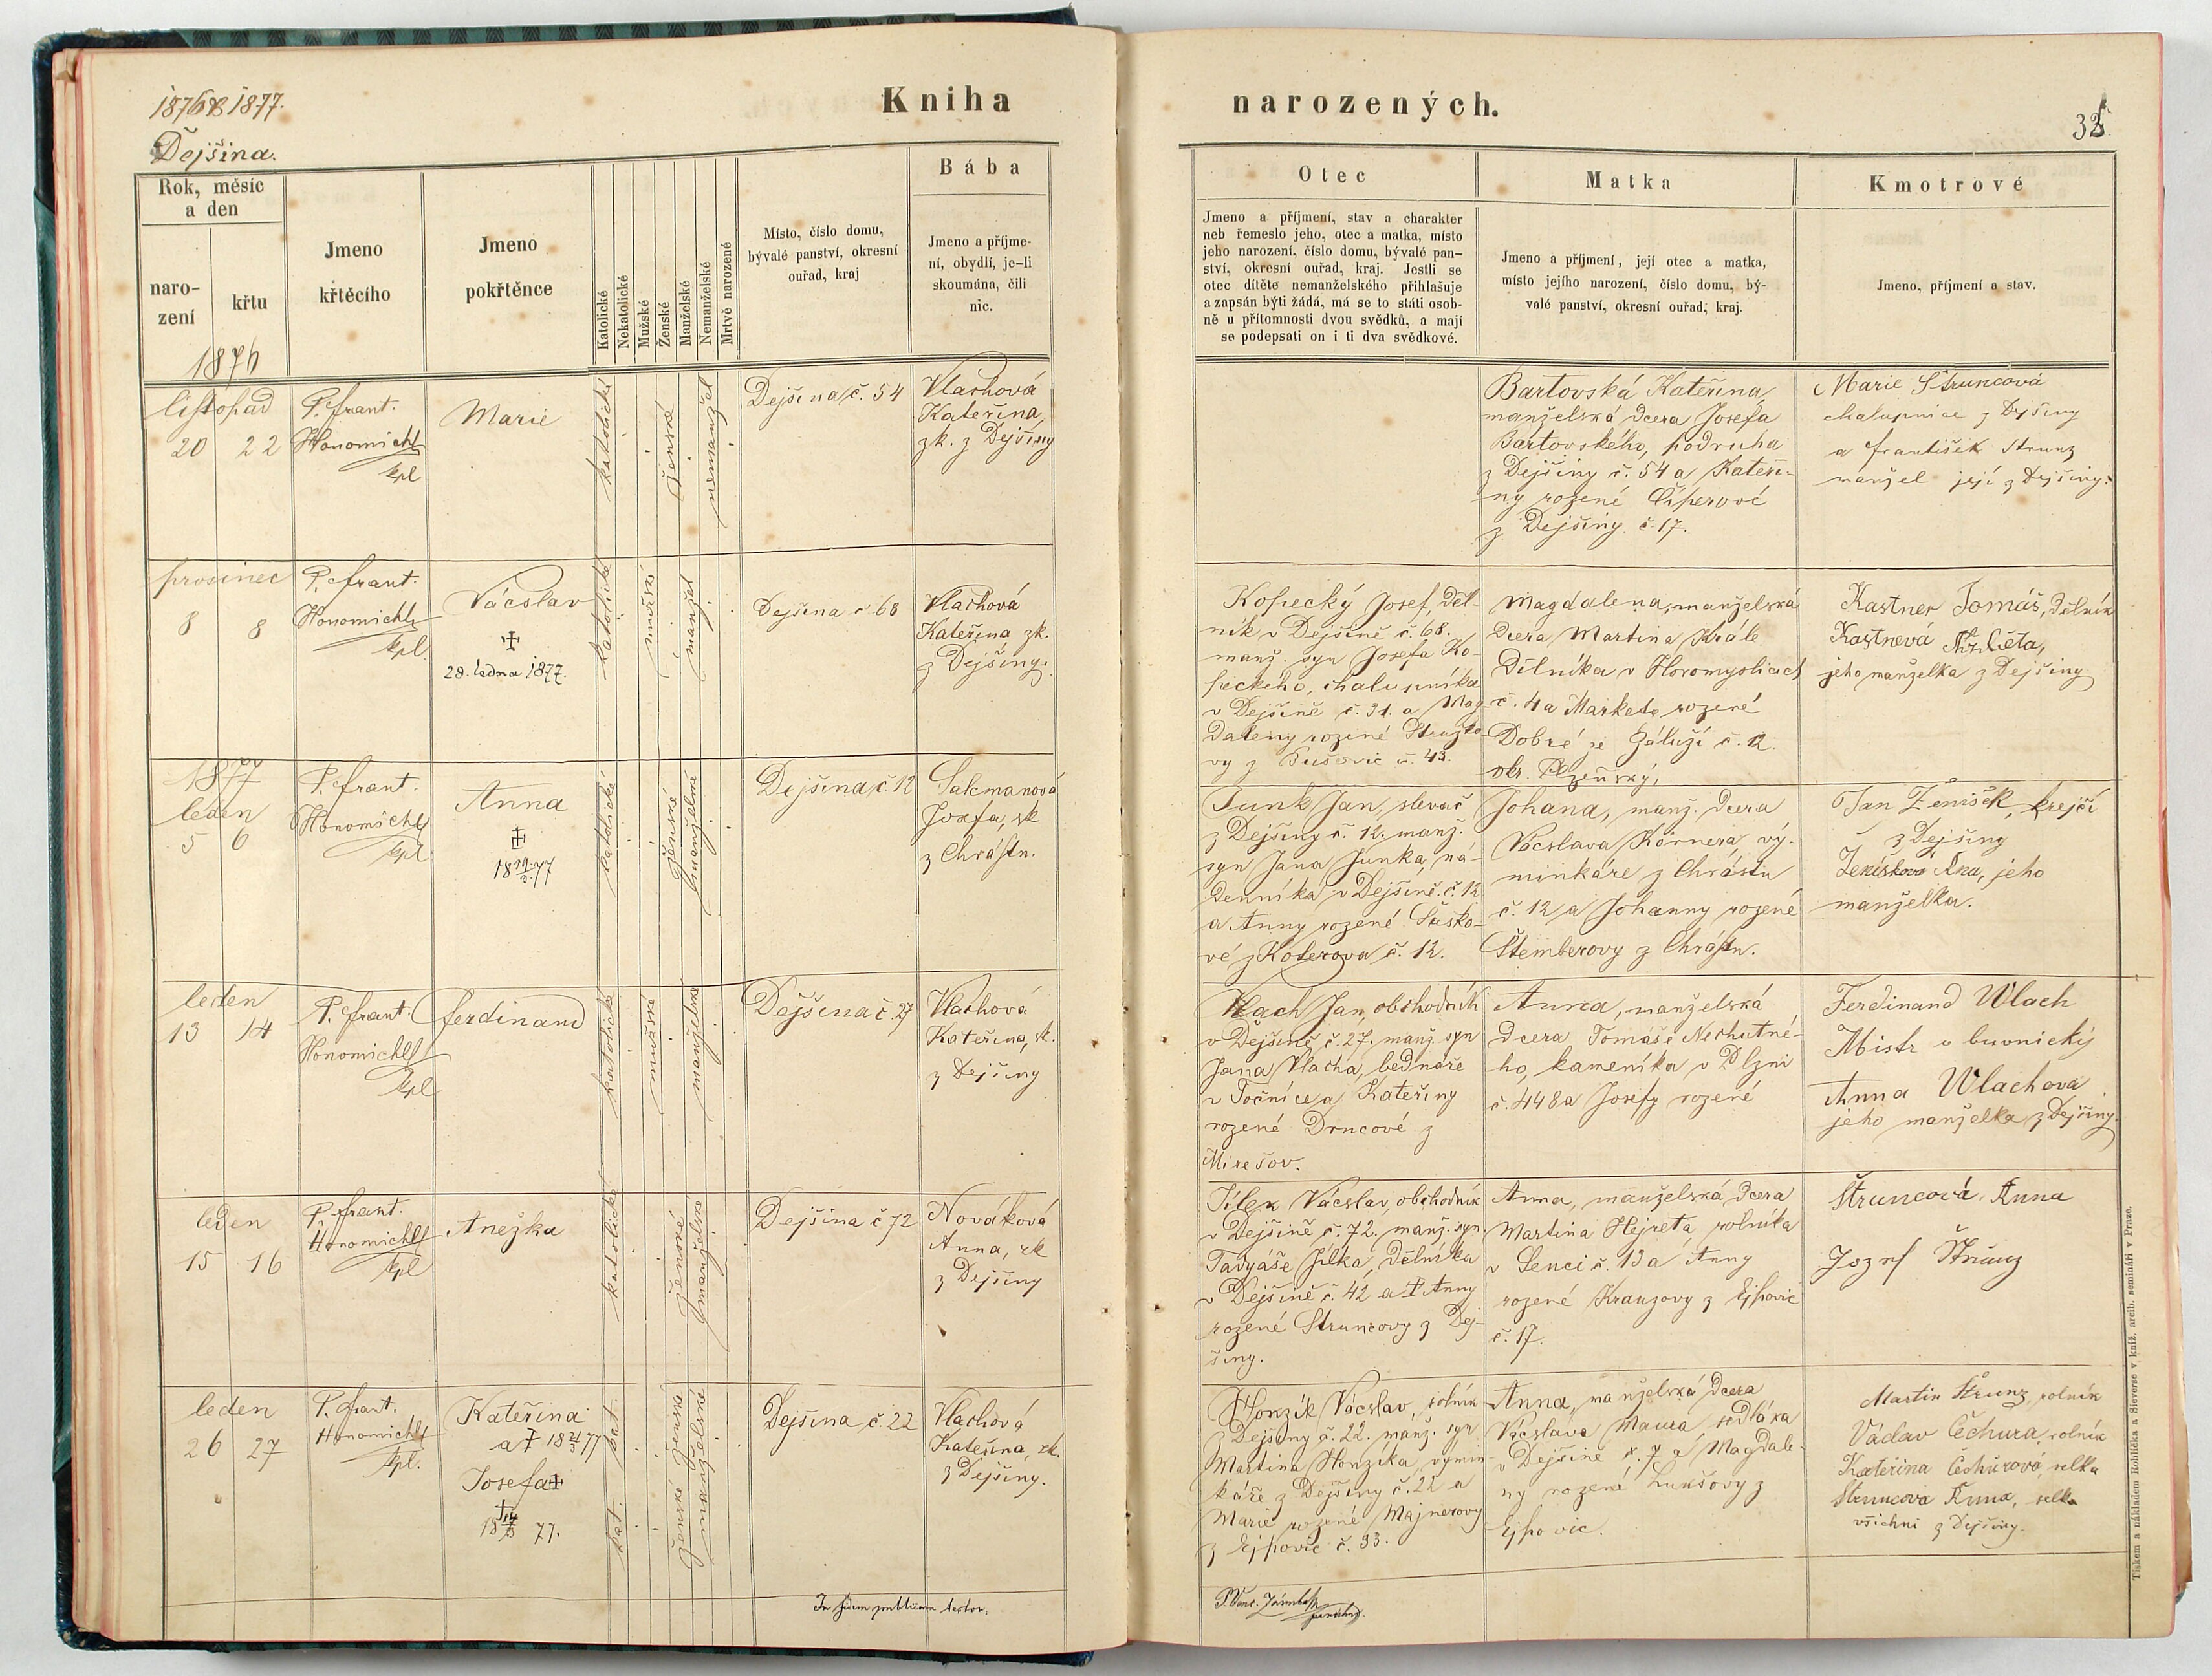 1876 & 1877.
Dejšina.
Kniha
narozených.
Rok, měsíc
a den
naro-
zení
křtu
1876
Jmeno
křtěcího
Jmeno
pokřtěnce
Katolické
Nekatolické
Mužské
Ženské
Manželské
Nemanželské
Mrtvě narozené
Místo, číslo domu,
bývalé panství, okresní
ouřad, kraj
Bába
Jmeno a příjme-
ní, obydlí, je-li
skoumána, čili
nic.
Otec
Jmeno a příjmení, stav a charakter
neb řemeslo jeho, otec a matka, místo
jeho narození, číslo domu, bývalé pan-
ství, okresní ouřad, kraj. Jestli se
otec dítěte nemanželského přihlašuje
a zapsán býti žádá, má se to státi osob-
ně u přítomnosti dvou svědků, a mají
se podepsati on i ti dva svědkové.
Matka
Jmeno a příjmení, její otec a matka,
místo jejího narození, číslo domu, bý-
valé panství, okresní ouřad, kraj.
Kmotrové
Jmeno, příjmení a stav.
listopad
20 22
P. Frant.
Honomichl
kpl
Marie
katolické
ženské
nemanžel
Dejšina č. 54
Vlachová
Kateřina,
zk. z Dejšiny
Bartovská Kateřina
manželská dcera Josefa
Bartovského, podruha
z Dejšiny č. 54 a Kateři-
ny rozené Číperové
z Dejšiny č. 17.
Marie Štruncová
chalupnice z Dejšiny
a František Strunz
manžel její z Dejšiny.
prosinec
8 8
P. Frant.
Honomichl
kpl
Vácslav
28. ledna 1877.
katolické
mužské
manžel
Dejšina č. 68
Vlachová
Kateřina zk.
z Dejšiny.
Kopecký Josef, děl-
ník v Dejšině č. 68.
manž. syn Josefa Ko-
peckého, chalupníka
v Dejšině č. 31. a Mag-
daleny rozené
vy z Bušovic č. 43.
Magdalena, manželská
dcera Martina Krále
dělníka v Horomyslicích
č. 4 a Markety rozené
Dobré ze Záluží č. 12.
okr. Plzeňský,
Kastner Tomáš, dělník
Kastnevá Alžběta,
jeho manželka z Dejšiny
1877
leden
5 6
P. Frant.
Honomichl
kpl
Anna
katolické
ženské
manželské
Dejšina č. 12
Sakmanová
Josefa, zk
z Chrástu.
Junk Jan, slevač
z Dejšiny č. 12. manž.
syn Jana Junka, ná-
denníka v Dejšině č. 12
a Anny rozené
vé z Koterova č. 12.
Johana, manž. dcera
Vácslava Körnera, vý-
minkáře z Chrástu
č. 12 a Johanny rozené
Štemberovy z Chrástu.
Jan Ženíšek, krejčí
z Dejšiny
Ženíšková Ana, jeho
manželka.
leden
13 14
P. Frant.
Honomichl
kpl
Ferdinand
katolické
mužské
manželské
Dejšina č. 27
Vlachová
Kateřina, zk.
z Dejšiny
Vlach Jan, obchodník
v Dejšině č. 27. manž. syn
Jana Vlacha, bednáře
v Točníce a Kateřiny
rozené Drncové z
Mirešov.
Anna, manželská
dcera Tomáše Nechutné-
ho, kameníka v Plzni
č. 448 a Josefy rozené
Ferdinand Wlach
Mistr
Anna Wlachova
jeho manželka z Dejšiny.
leden
15 16
P. Frant.
Honomichl
kpl
Anežka
katolické
ženské
manželské
Dejšina č 72
Nováková
Anna, zk
z Dejšiny
Jílek Vácslav, obchodník
v Dejšině č. 72. manž. syn
Tadyáše Jílka, dělníka
v Dejšině č. 42 a † Anny
rozené Struncovy z Dej-
šiny.
Anna, manželská dcera
Martina Hejreta, rolníka
v Senci č. 13 a Anny
rozené Krauzovy z Ejpovic
č. 17.
Štruncová Anna
Jozef Štrunz
leden
26 27
P. Frant.
Honomichl
kpl.
Kateřina
Josefa
kat.
kat.
ženské
ženské
manželské
Dejšina č. 22
Vlachová
Kateřina, zk.
z Dejšiny.
Honzík Vácslav, rolník
z Dejšiny č. 22. manž. syn
Martina Honzíka, výmin-
káře z Dejšiny č. 22 a
Marie rozené Majnerovy
z Ejpovic č. 33.
Anna, manželská dcera
Vácslava Maura, sedláka
v Dejšině č. 7 a Magdale-
ny rozené Lukšovy z
Ejpovic.
Martin Štrunz, rolník
Václav Čechura, rolník
Kateřina Čechurová, selka
Štruncová Anna, selka
všichni z Dejšiny.
In fidem publicam testor.
Tiskem a nákladem Rohlíčka a Sieverse v kníž. arcib. semináři v Praze.